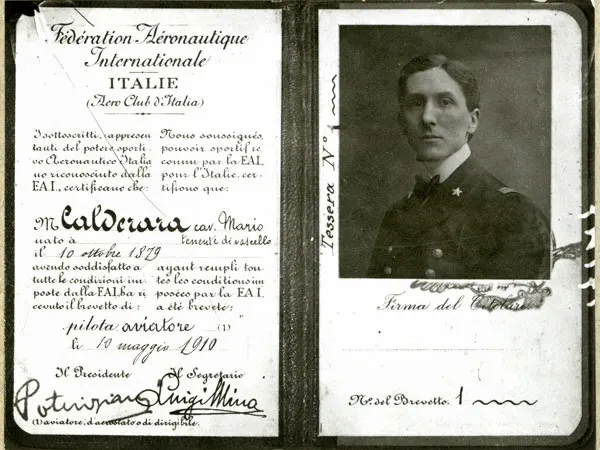 Fédération Aéronautique
Internationale
ITALIE
(Aero Club d'Italia)
I sottoscritti, rappresen
tanti del potere sporti-
vo Aeronautico Italia
no riconosciuto dalla
F.A.I., certificano che:
Nous soussignés,
pouvoir sportif re,
connu par la F.A.I.,
pour l'Italie, cer-
tifions que:
M Calderara cav. Mario
nato à tenente di vascello
il 10 ottobre 1879
avendo soddisfatto a
tutte le condizioni im
poste dalla F.A.I. ha ri
cevuto il brevetto di:
ayant rempli tou-
tes les conditions im
posées par la F.A.I.
a été breveté:
pilota aviatore (1)"
li 10 maggio 1910
Il Presidente Il Segretario
Luigi Mina
(1) aviatore, d'aerostato o di dirigibile.
Tessera N° 1
Firma del Titolare
N° del Brevetto. 1